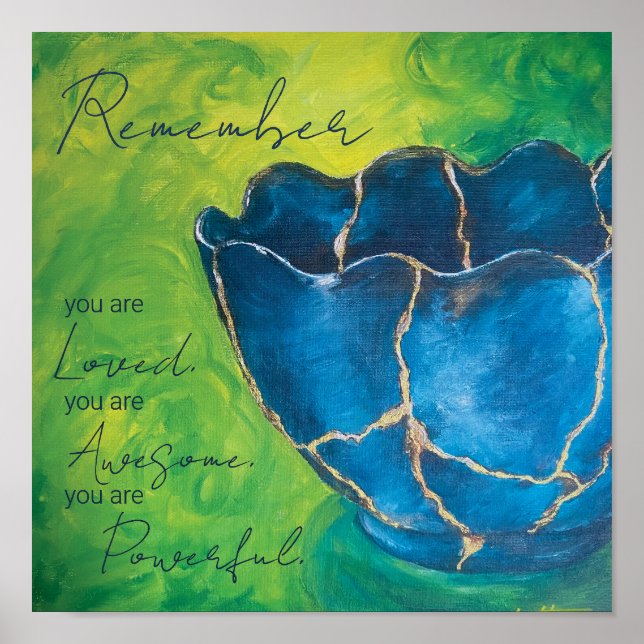 Remember
you are
Loved.
you are
Awesome.
you are
Powerful.